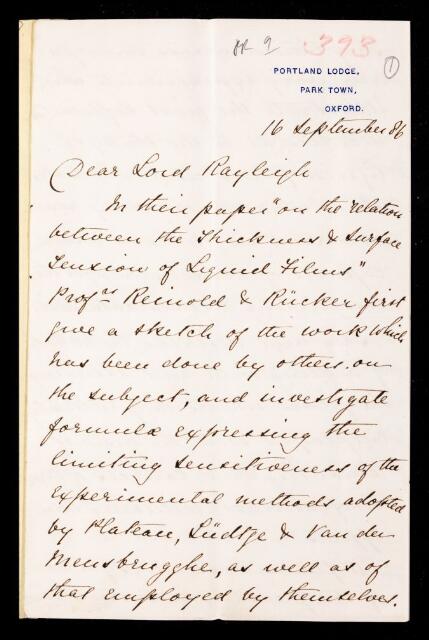 RR 9 393. 1
PORTLAND LODGE,
PARK TOWN,
OXFORD.
16 September 86
Dear Lord Rayleigh
In their paper "on the relation
between the Thickness & Surface
Tension of Liquid Films"
Profrs Reinold & Rücker first
give a sketch of the work which
has been done by others on
the subject, and investigate
formulæ expressing the
limiting sensitiveness of the
experimental methods adopted
by Plateau, Lüdtge & Van der
Mensbrugghe, as well as of
that employed by themselves.